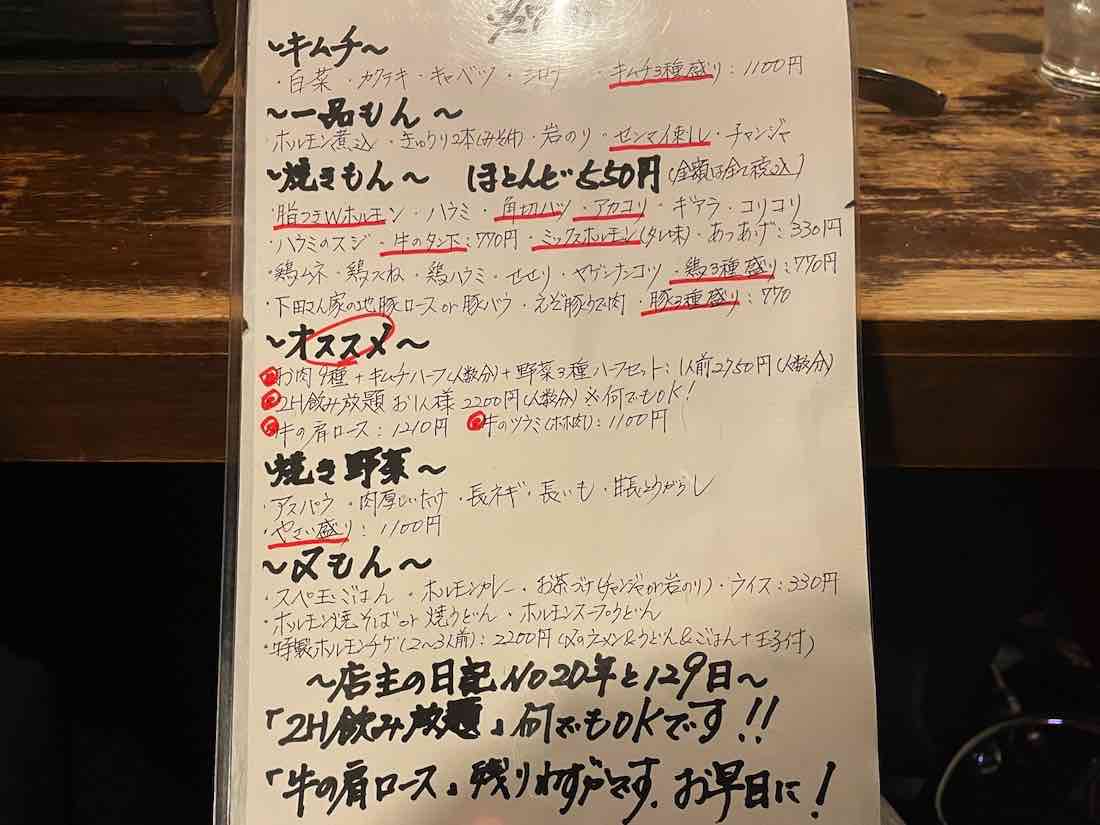 ~キムチ~
・白菜・カクテキ・キャベツ・ :キムチ3種盛り:1100円
~一品もん~
・ホルモン煮込・きゅうり2本(みそ付)・岩のり・センマイ刺し・チャンジャ
~焼きもん~ ほとんど550円(金額は全て税込)
・脂つきWホルモン・ハラミ・角切ハツ・アカコリ・ギアラ・コリコリ
・ハラミのスジ・牛のタン下:770円・ミックスホルモン(タレ味)・あつあげ:330円
・鶏ムネ・鶏つくね・鶏ハラミ・せせり・ヤゲンナンコツ・鶏3種盛り:770円
・下田さん家の地豚ロースor豚バラ・えぞ豚うす肉・豚3種盛り:770
~オススメ~
お肉9種+キムチハーフ(人数分)+野菜3種ハーフセット:1人前2750円(人数分)
2H飲み放題 お1人様2200円(人数分)※何でもOK!
牛の肩ロース:1210円 牛のツラミ(ホホ肉):1100円
焼き野菜~
・アスパラ・肉厚しいたけ・長ネギ・長いも・甘長とうがらし
・やさい盛り:1100円
~〆もん~
・スペ玉ごはん・ホルモンカレー・お茶づけ(チャンジャor岩のり)・ライス:330円
・ホルモン焼そばor焼うどん・ホルモンスープうどん
・特製ホルモンチゲ(2~3人前):2200円(〆のラーメン&うどん&ごはん+玉子付)
~店主の日記NO20年と129日~
「2H飲み放題」何でもOKです!!
「牛の肩ロース」残りわずかです。お早目に!